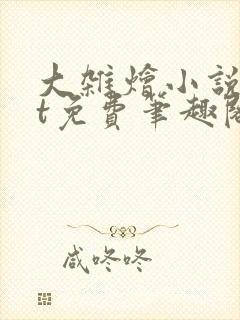 大雜燴小說
t免費筆趣閣
咸咚咚